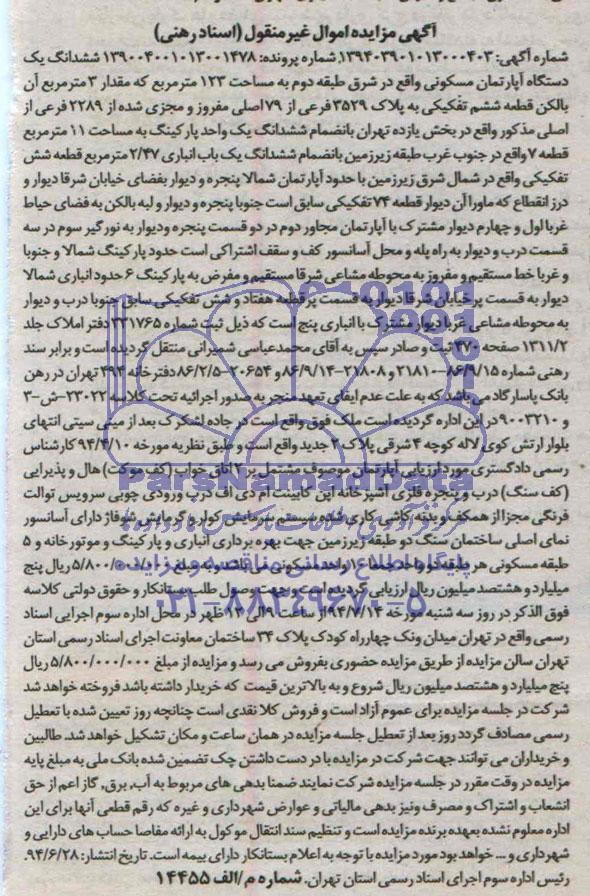 آگهی مزایده اموال غیر منقول (اسناد رهنی)
شماره آگهی: ۱۳۹۴۰۳۹۰۱۰۱۳۰۰۰۴۰۳ شماره پرونده: ۱۳۹۰۰۴۰۰۱۰۱۳۰۰۱۴۷۸ ششدانگ یک
دستگاه آپارتمان مسکونی واقع در شرق طبقه دوم به مساحت ۱۲۳ مترمربع که مقدار ۳ مترمربع آن
بالکن قطعه ششم تفکیکی به پلاک ۳۵۲۹ فرعی از ۷۹ اصلی مفروز و مجزی شده از ۲۲۸۹ فرعی از
اصلی مذکور واقع در بخش یازده تهران بانضمام ششدانگ یک واحد پارکینگ به مساحت ۱۱ مترمربع
قطعه ۷ واقع در جنوب غرب طبقه زیرزمین بانضمام ششدانگ یک باب انباری ۲/۴۷ مترمربع قطعه شش
تفکیکی واقع در شمال شرق زیرزمین با حدود آپارتمان شمالا پنجره و دیوار بفضای خیابان شرقا دیوار و
درز انقطاع که ماورا آن دیوار قطعه ۷۴ تفکیکی سابق است جنوبا پنجره و دیوار و لبه بالکن به فضای حیاط
غربا اول و چهارم دیوار مشترک با آپارتمان مجاور دوم در دو قسمت پنجره ودیوار به نورگیر سوم در سه
قسمت درب و دیوار به راه پله و محل آسانسور کف و سقف اشتراکی است حدود پارکینگ شمالا و جنوبا
و غربا خط مستقیم و مفروز به محوطه مشاعی شرقا مستقیم و مفرض به پارکینگ ۶ حدود انباری شمالا
دیوار به قسمت پر خیابان شرقا دیوار به قسمت پر قطعه هفتاد و شش تفکیکی سابق جنوبا درب و دیوار
به محوطه مشاعی غربا دیوار مشترک با انباری پنج است که ذیل ثبت شماره ۲۳۱۷۶۵ دفتر املاک جلد
۱۳۱۱/۲ صفحه ۴۷۰ ثبت و صادر سپس به آقای محمدعباسی شمیرانی منتقل گردیده است و برابر سند
رهنی شماره ۸۶/۹/۱۵–۲۱۸۱۰ و ۸۶/۹/۱۴–۲۱۸۰۸ و ۲۰۶۵۴–۸۶/۲/۵ دفترخانه ۴۹۴ تهران در رهن
بانک پاسارگاد می باشد که به علت عدم ایفای تعهد منجر به صدور اجرائیه تحت کلاسه ۲۳۰۲۲-ش-۳
و ۹۰۰۳۲۱۰ در این اداره گردیده است ملک فوق واقع است در جاده لشکرک بعد از مینی سیتی انتهای
بلوار ارتش کوی لاله کوچه ۴ شرقی پلاک ۲ جدید واقع است و طبق نظریه مورخه ۹۴/۴/۱۰ کارشناس
رسمی دادگستری مورد ارزیابی آپارتمان موصوف مشتمل بر ۲ اتاق خواب (کف موکت) هال و پذیرایی
(کف سنگ) درب و پنجره فلزی آشپزخانه اپن کابینت ام دی اف درب ورودی چوبی سرویس توالت
فرنگی مجزا از همکف و بدنه کاشی کاری شده سیستم سرمایش کولر و گرمایش شوفاژ دارای آسانسور
نمای اصلی ساختمان سنگ دو طبقه زیرزمین جهت بهره برداری انباری و پارکینگ و موتورخانه و ۵
طبقه مسکونی هر طبقه دو واحد جمعا ۱۰ واحد مسکونی می باشد و به مبلغ ۵/۸۰۰/۰۰۰/۰۰۰ ریال پنج
میلیارد و هشتصد میلیون ریال ارزیابی گردیده است و جهت وصول طلب بستانکار و حقوق دولتی کلاسه
فوق الذکر در روز سه شنبه مورخه ۹۴/۷/۱۴ از ساعت ۹ الی ۱۲ ظهر در محل اداره سوم اجرایی اسناد
رسمی واقع در تهران میدان ونک چهارراه کودک پلاک ۳۴ ساختمان معاونت اجرای اسناد رسمی استان
تهران سالن مزایده از طریق مزایده حضوری بفروش می رسد و مزایده از مبلغ ۵/۸۰۰/۰۰۰/۰۰۰ ریال
پنج میلیارد و هشتصد میلیون ریال شروع و به بالاترین قیمت که خریدار داشته باشد فروخته خواهد شد
شرکت در جلسه مزایده برای عموم آزاد است و فروش کلا نقدی است چنانچه روز تعیین شده با تعطیل
رسمی مصادف گردد روز بعد از تعطیل جلسه مزایده در همان ساعت و مکان تشکیل خواهد شد. طالبین
و خریداران می توانند جهت شرکت در مزایده با در دست داشتن چک تضمین شده بانک ملی به مبلغ پایه
مزایده در وقت مقرر در جلسه مزایده شرکت نمایند ضمنا بدهی های مربوط به آب، برق، گاز اعم از حق
انشعاب و اشتراک و مصرف ونیز بدهی مالیاتی و عوارض شهرداری و غیره که رقم قطعی آنها برای این
اداره معلوم نشده بعهده برنده مزایده است و تنظیم سند انتقال موکول به ارائه مفاصا حساب های دارایی و
شهرداری و ... خواهد بود مورد مزایده با توجه به اعلام بستانکار دارای بیمه است. تاریخ انتشار: ۹۴/۶/۲۸.
رئیس اداره سوم اجرای اسناد رسمی استان تهران. شماره م/الف ۱۴۴۵۵
ParsNamadData
پایگاه اطلاع رسانی مناقصه و مزایده
۰۲۱-۸۸۳۴۹۶۷۰-۵